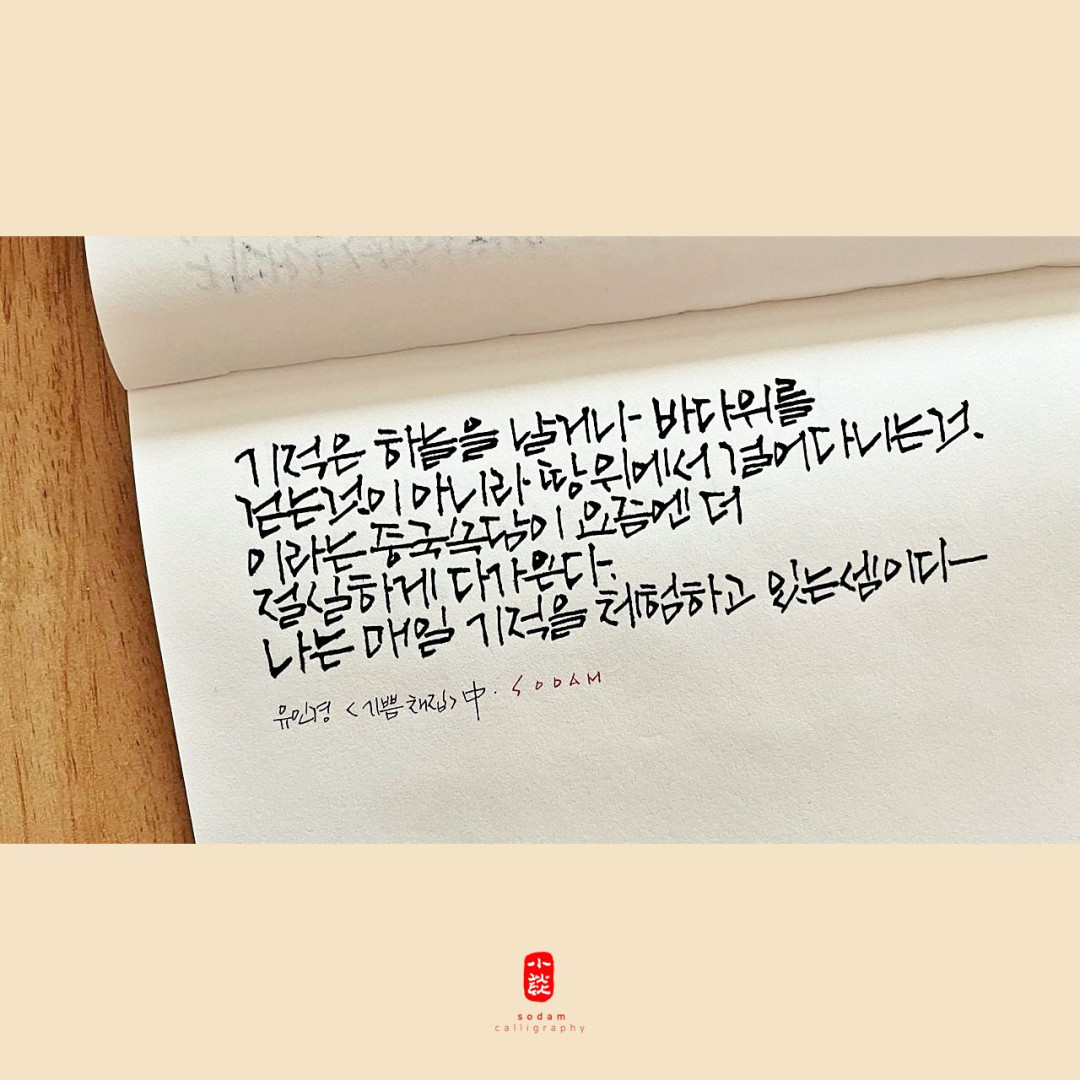 기적은 하늘을 날거나 바다위를
걷는것이 아니라 땅위에서 걸어다니는것.
이라는 중국속담이 요즘엔 더
절실하게 다가온다.
나는 매일 기적을 체험하고 있는셈이다-
유인경 <기쁨채집> 中. SODAM
小談
sodam
calligraphy